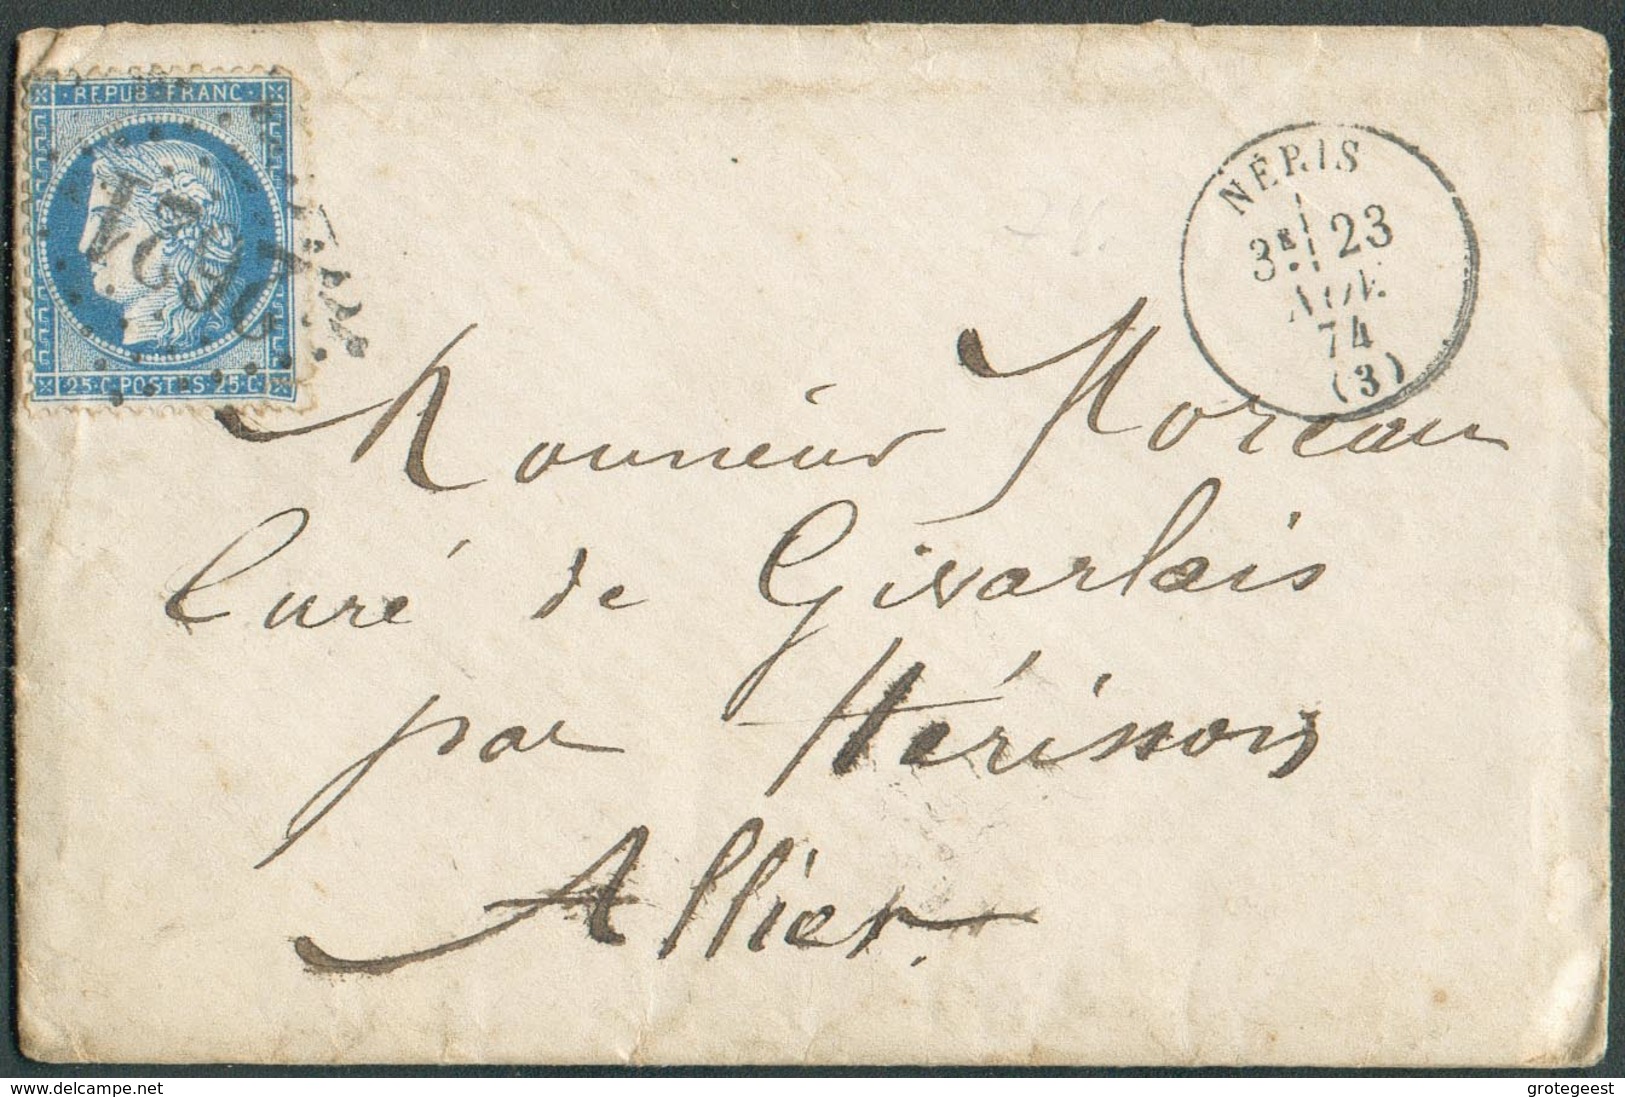 REPUB FRANC
2621
25·C·POSTES 25·C·
NÉRIS
3E 23
74
(3)
Monsieur Moreau
Curé de Givarlais
par Hérisson
Allier.
delcampe.net
grotegeest